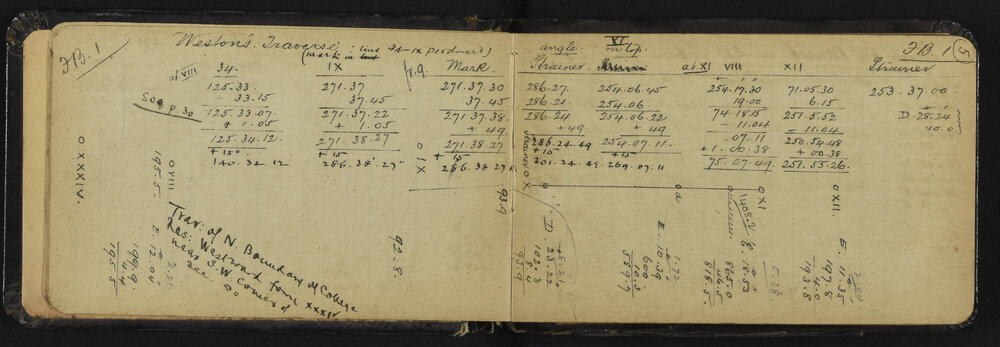 F.B. 1
Weston's Traverse
(mark in line 34-IX produced)
at VIII
34.
IX
fr. 9.
Mark.
125.33
271.37
271.37.30
- 33.15
37.45
37.45
See p. 30
125.33.07
271.37.22
271.37.38
+ 1.05
+ 1.05
+ 49
125.34.12
271.38.27
271.38.27
+ 15°
+ 15
+ 15
140.34.12
286.38'.27"
286.38.27
O XXXIV.
O VIII
195.5
E. 12.04
199.9
4.4
195.5
Trav: of N. Boundary of College
Res: Westward from XXXIV
near S.W corner of
Sec.
O IX
92.8
93.9
angle.
XI
on top.
F.B. 1
5
Strainer.
at XI
VIII
XII
Strainer
286.27.
254.06.45
254.17.30
71.05.30
253.37.00.
286.21.
254.06
19.00
6.15
D. 28.24
286.24
254.06.22
74.18.15
251.5.52
40.0
+49
+49
- 11.04
- 11.04
286.24.49
254.07.11
.07.11
250.54.48
+15
+15
+1.00.38
+ 00.38
301.24.49
269.07.11
75.07.49
251.55.26
Strainer O X
D. 28.22
102.3
8.4
93.9
O a
E. 10.39
600.
10.3
589.7
O XI
Strainer
E 18.52
865.0
46.5
818.5
O XII.
E. 11.35
197.8
4.0
193.8